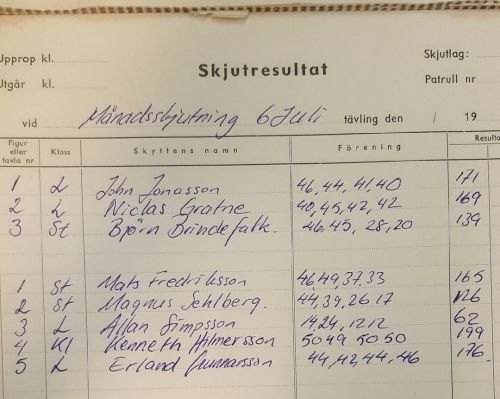 Upprop kl.
Utgår kl.
Skjutresultat
Skjutlag:
Patrull nr
vid Månadsskjutning 6 Juli tävling den / 19
Figur eller tavla nr Klass Skyttens namn Förening Resulta
1 L John Jonasson 46, 44, 41, 40 171
2 L Niclas Gratne 40, 45, 42, 42 169
3 St Björn Brindefalk. 46, 45, 28, 20 139
1 St Mats Fredriksson 46, 49, 37, 33 165
2 St Magnus Sehlberg. 44, 39, 26 17 126
3 L Allan Simpsson 14, 24, 12 12 62
4 Kl Kenneth Hilmersson 50 49 50 50 199
5 L Erland Gunnarsson 44, 42, 44, 46 176